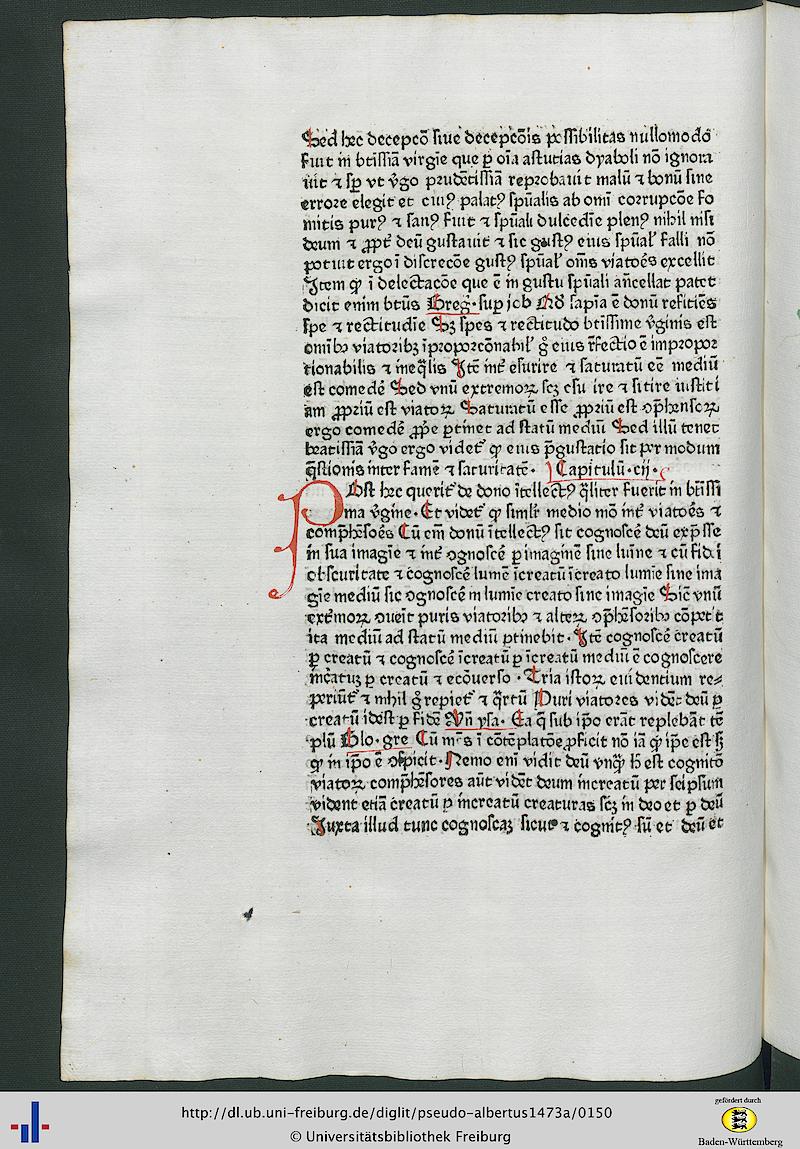 Sed hec decepcō siue decepcōis possibilitas nullomodō
fuit in btissiā virgīe que p oīa astutias dyaboli nō ignora
uit ⁊ sp vt v̄go prudētissiā reprobauit malū ⁊ bonū sine
errore elegit et cuiꝰ palatꝰ spūalis ab omī corrupcōe fo
mitis purꝰ ⁊ sanꝰ fuit ⁊ spūali dulcedīe plenꝰ nihil nisi
deum ⁊ ꝓpt̄ deū gustauit ⁊ sic gustꝰ eius spūal falli nō
potuit ergo ī discrecōe gustꝰ spūal om̄s viatoēs excellit
Item ꝙ ī delectacōe que ē in gustu spūali añcellat patet
dicit enim btūs Greg· sup job Ad sapīa ē donū refitiēs
spe ⁊ rectitudīe Sꝫ spes ⁊ rectitudo btissime v̄ginis est
omībꝰ viatoribꝫ īproporcōnabil g̊ eius r̄fectio ē impropor
tionabilis ⁊ ineq̄lis Itē int̄ esurire ⁊ saturatū eē mediū
est comedē Sed vnū extremoꝝ scꝫ esu ire ⁊ sitire iustiti
am ꝓpriū est viatoꝝ Saturatū esse ꝓpriū est ꝯphensoꝝ
ergo comedē ꝓpe ꝑtinet ad statū mediū Sed illū tenet
beatissiā v̄go ergo videt̄ ꝙ eius p̄gustatio sit per modum
q̄stionis inter famē ⁊ saturitatē· Capitulū·cij·
POst hec querit̄ de dono ītellectꝰ q̄liter fuerit in btissi
ma v̄gine· Et videt̄ ꝙ simili medio mō int̄ viatoēs ⁊
comph̄ēsoēs Cū em̄ donū ītellectꝰ sit cognoscē deū exp̄sse
in sua imagīe ⁊ int̄ ꝯgnoscē ꝑ imaginē sine luīne ⁊ cū fidei
obscuritate ⁊ cognoscē lumē īcreatū īcreato lumīe sine ima
gīe mediū sic ꝯgnoscē in lumīe creato sine imagīe Sic̄ vnū
ext̄moꝝ ꝯueīt puris viatoribꝰ ⁊ alteꝝ ꝯph̄ēsoribꝰ cōpetit
ita mediū ad statū mediū ꝑtinebit· Itē cognoscē creatū
ꝑ creatū ⁊ cognoscē īcreatū ꝑ īcreatū mediū ē cognoscere
īncr̄atuꝫ ꝑ creatū ⁊ ecōuerso · Tria istoꝝ euidentium re⸗
periūt̄ ⁊ nihil g̊ repiet̄ ⁊ q̄rtū Puri viatores vidēt deū ꝑ
creatū idest ꝑ fidē Vn̄ ysa· Ea q̄ sub ip̄o erāt replebāt tē
plū Glo·gre Cū mēs ī cōtēplatōe ꝓficit nō iā ꝙ ip̄e est sꝫ
ꝙ in ip̄o ē ꝯspicit· Nemo enī vidit deū vnqꝫ h̄ est cognitō
viatoꝝ comph̄ēsores aūt vidēt deum increatū per seipsum
vident etiā creatū ꝑ increatū creaturas scꝫ in deo et ꝑ deū
Juxta illud tunc cognoscaꝫ sicut ⁊ cognitꝰ sū et deū et
http://dl.ub.uni-freiburg.de/diglit/pseudo-albertus1473a/0150
© Universitätsbibliothek Freiburg
gefördert durch
Baden-Württemberg